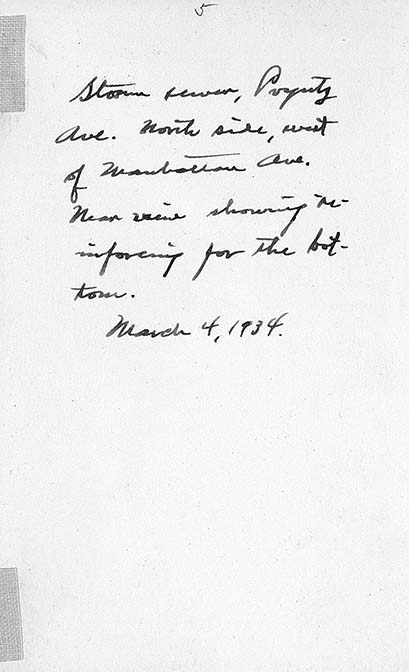 5
Storm sewer, Poyntz
Ave. North side, west
of Manhattan Ave.
Near view showing re-
inforcing for the bot-
tom.
March 4, 1934.